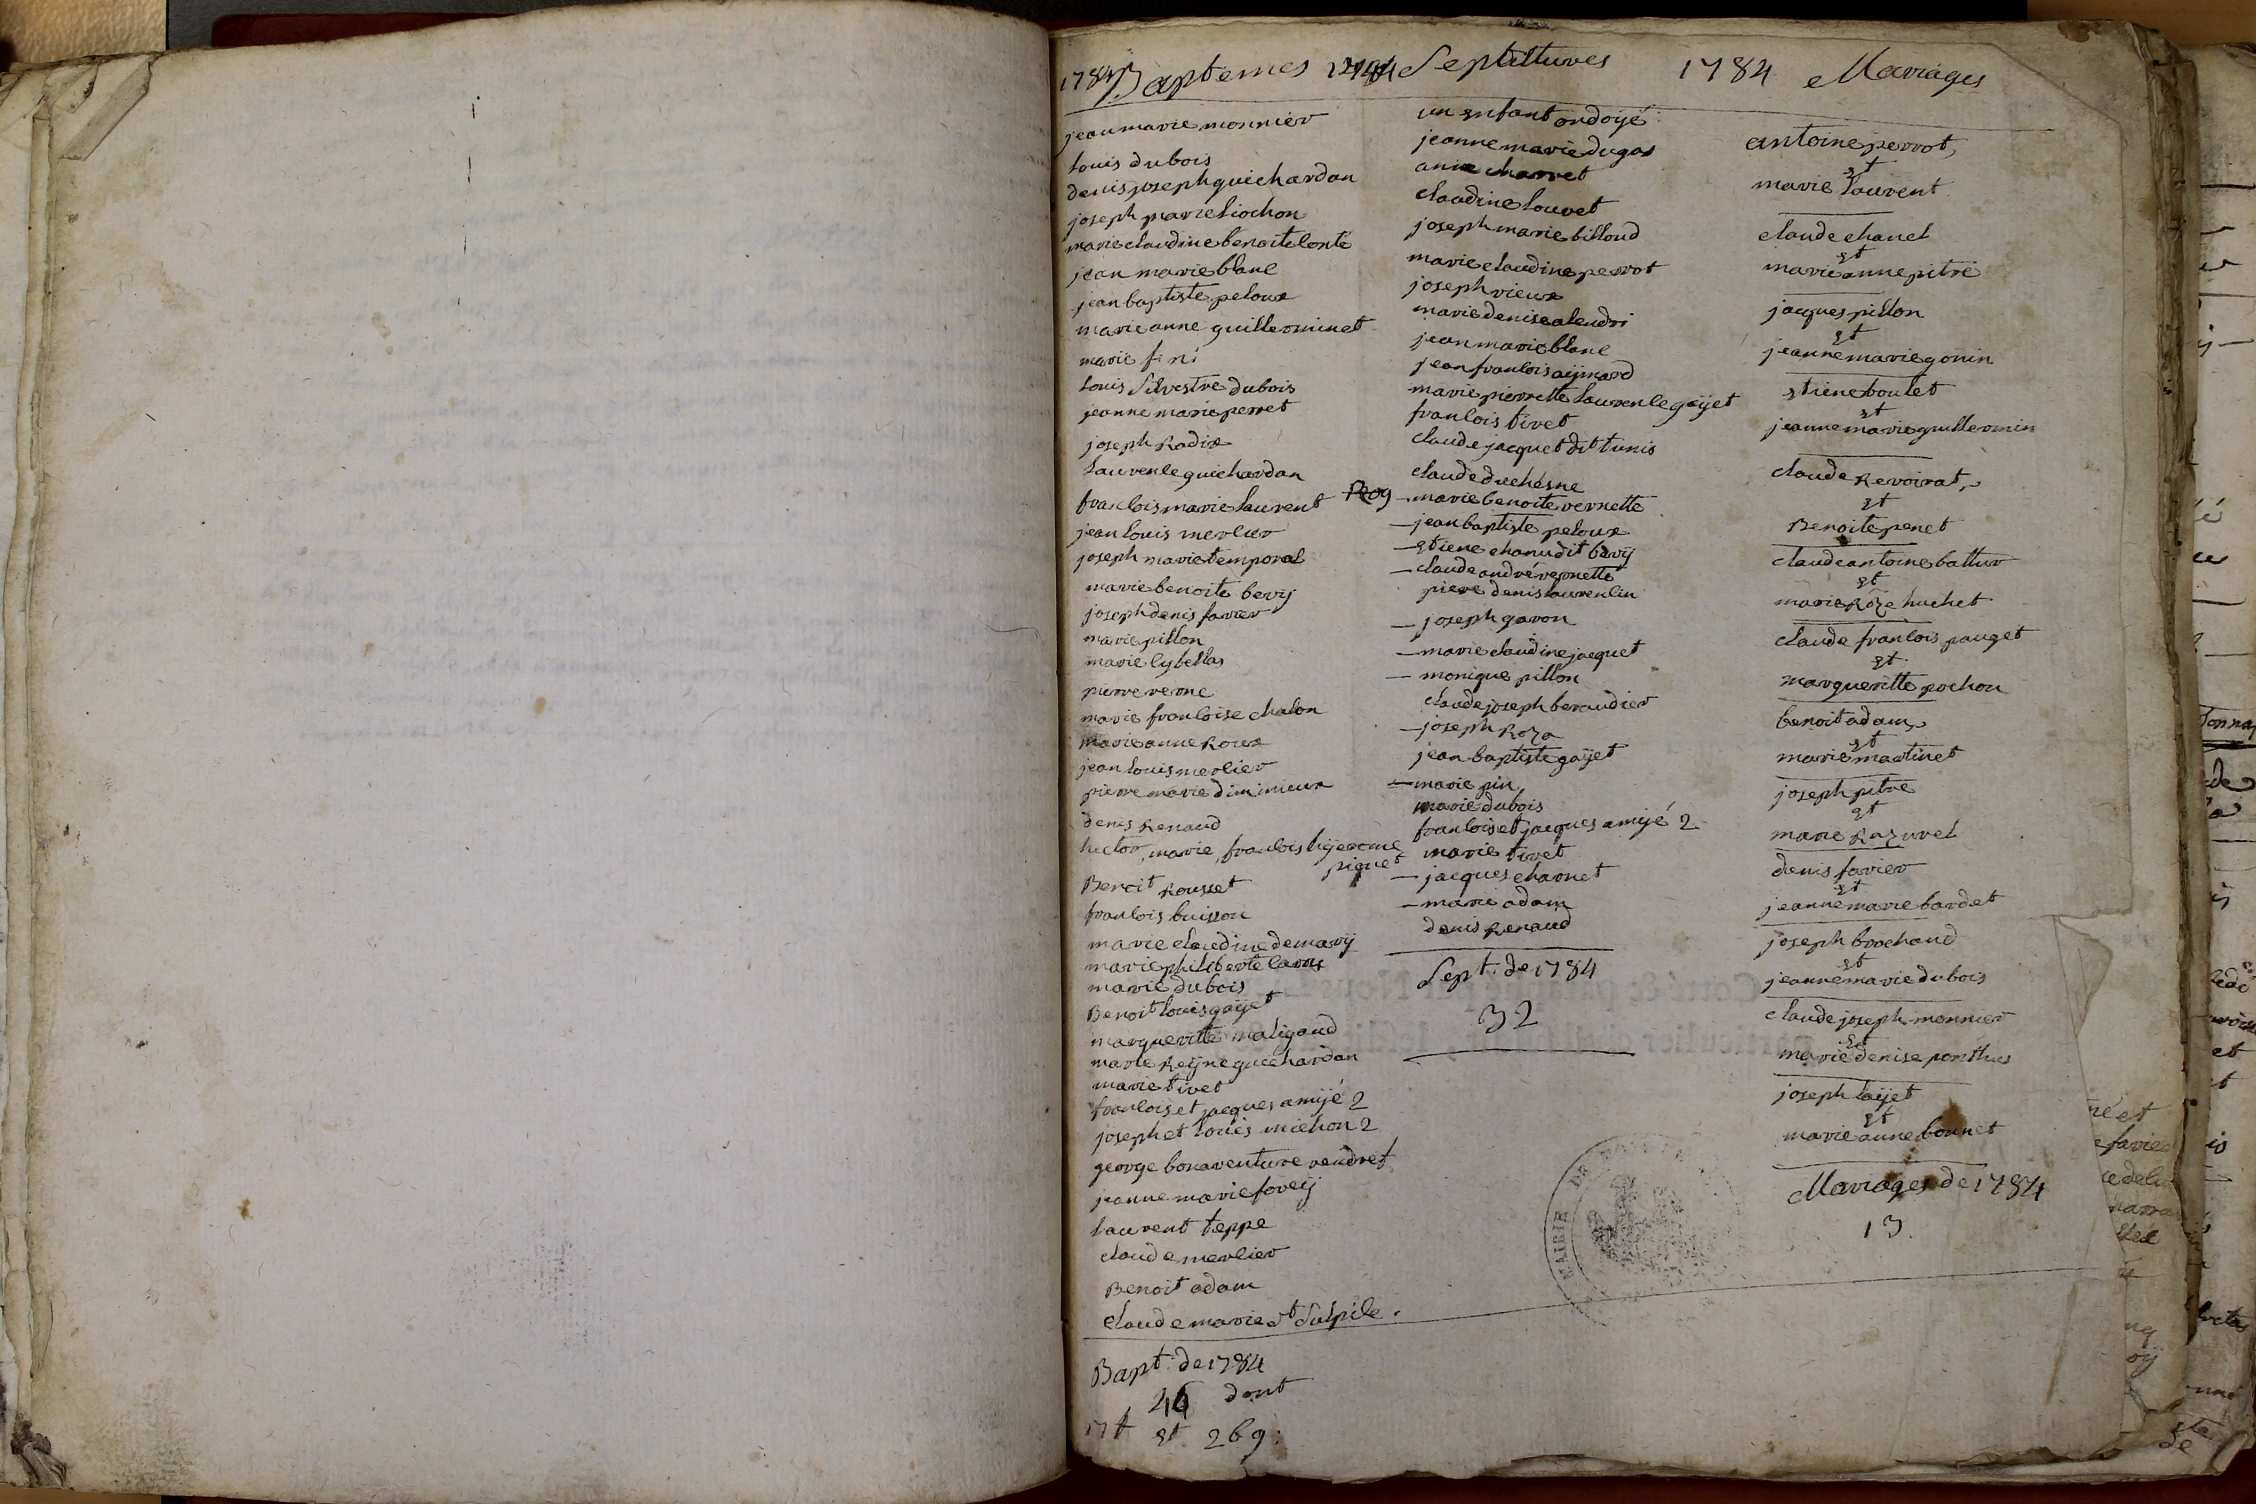 1784 Baptemes
jean marie monnier
louis dubois
denis joseph guichardan
joseph marie liochon
marie claudine benoite lonté
jean marie blanc
jean baptiste peloux
marie anne guillerminet
marie
louis Silvestre dubois
jeanne marie perret
joseph Radix
laurence guichardan
francois marie laurent
jean louis merlier
joseph marie temporal
marie benoite bevÿ
joseph denis favier
marie pillon
marie
pierre verne
marie francoise chalon
marie anne Roux
jean louis merlier
pierre marie diminieux
denis Renaud
hector, marie, francois hÿerome
piquet
Benoit Rousset
francois buisson
marie claudine demarÿ
marie philiberte
marie dubois
Benoit louis gaÿet
margueritte maligand
marie Reÿne guichardan
marie tivet
francois et jacques amijé 2
joseph et louis michon 2
george bonaventure vendret
jeanne marie foreÿ
laurent teppe
claude merlier
Benoit adam
claude marie St Sulpice.
Bapt. de 1784
46 dont
17 et 269.
1784 Sepultures
un enfant ondoÿé
jeanne marie dugas
anne charvet
claudine louvet
joseph marie billoud
marie claudine perrot
joseph vieux
marie denise
jean marie blanc
jean francois aÿmard
marie pierrette laurence gaÿet
francois tivet
claude jacquet dit tunis
claude duchesne
marie benoite vernette
jean baptiste peloux
etiene chanu dit bevÿ
claude andré vernette
piere denis laurencin
joseph gavon
marie claudine jacquet
monique pillon
claude joseph beraudier
joseph Roza
jean baptiste gaÿet
marie pin
marie dubois
francois et jacques amijé 2
marie tivet
jacques charnet
marie adam
denis Renaud
Sept. de 1784
32
1784 Mariages
antoine perrot,
et
marie laurent
claude chanel
et
marie anne pitre
jacques pillon
et
jeanne marie gonin
etiene boulet
et
jeanne marie guillermin
claude Revoirat,
et
Benoite penet
claude antoine battur
et
marie Roze huchet
claude francois pauget
et
margueritte pochon
benoit adam,
et
marie martinet
joseph pitre
et
marie Razurel
denis favier
et
jeanne marie bardet
joseph brochand
et
jeanne marie dubois
claude joseph monnier
et
marie denise ponthus
joseph laÿet
et
marie anne bonnet
Mariages de 1784
13.
MAIRIE DE